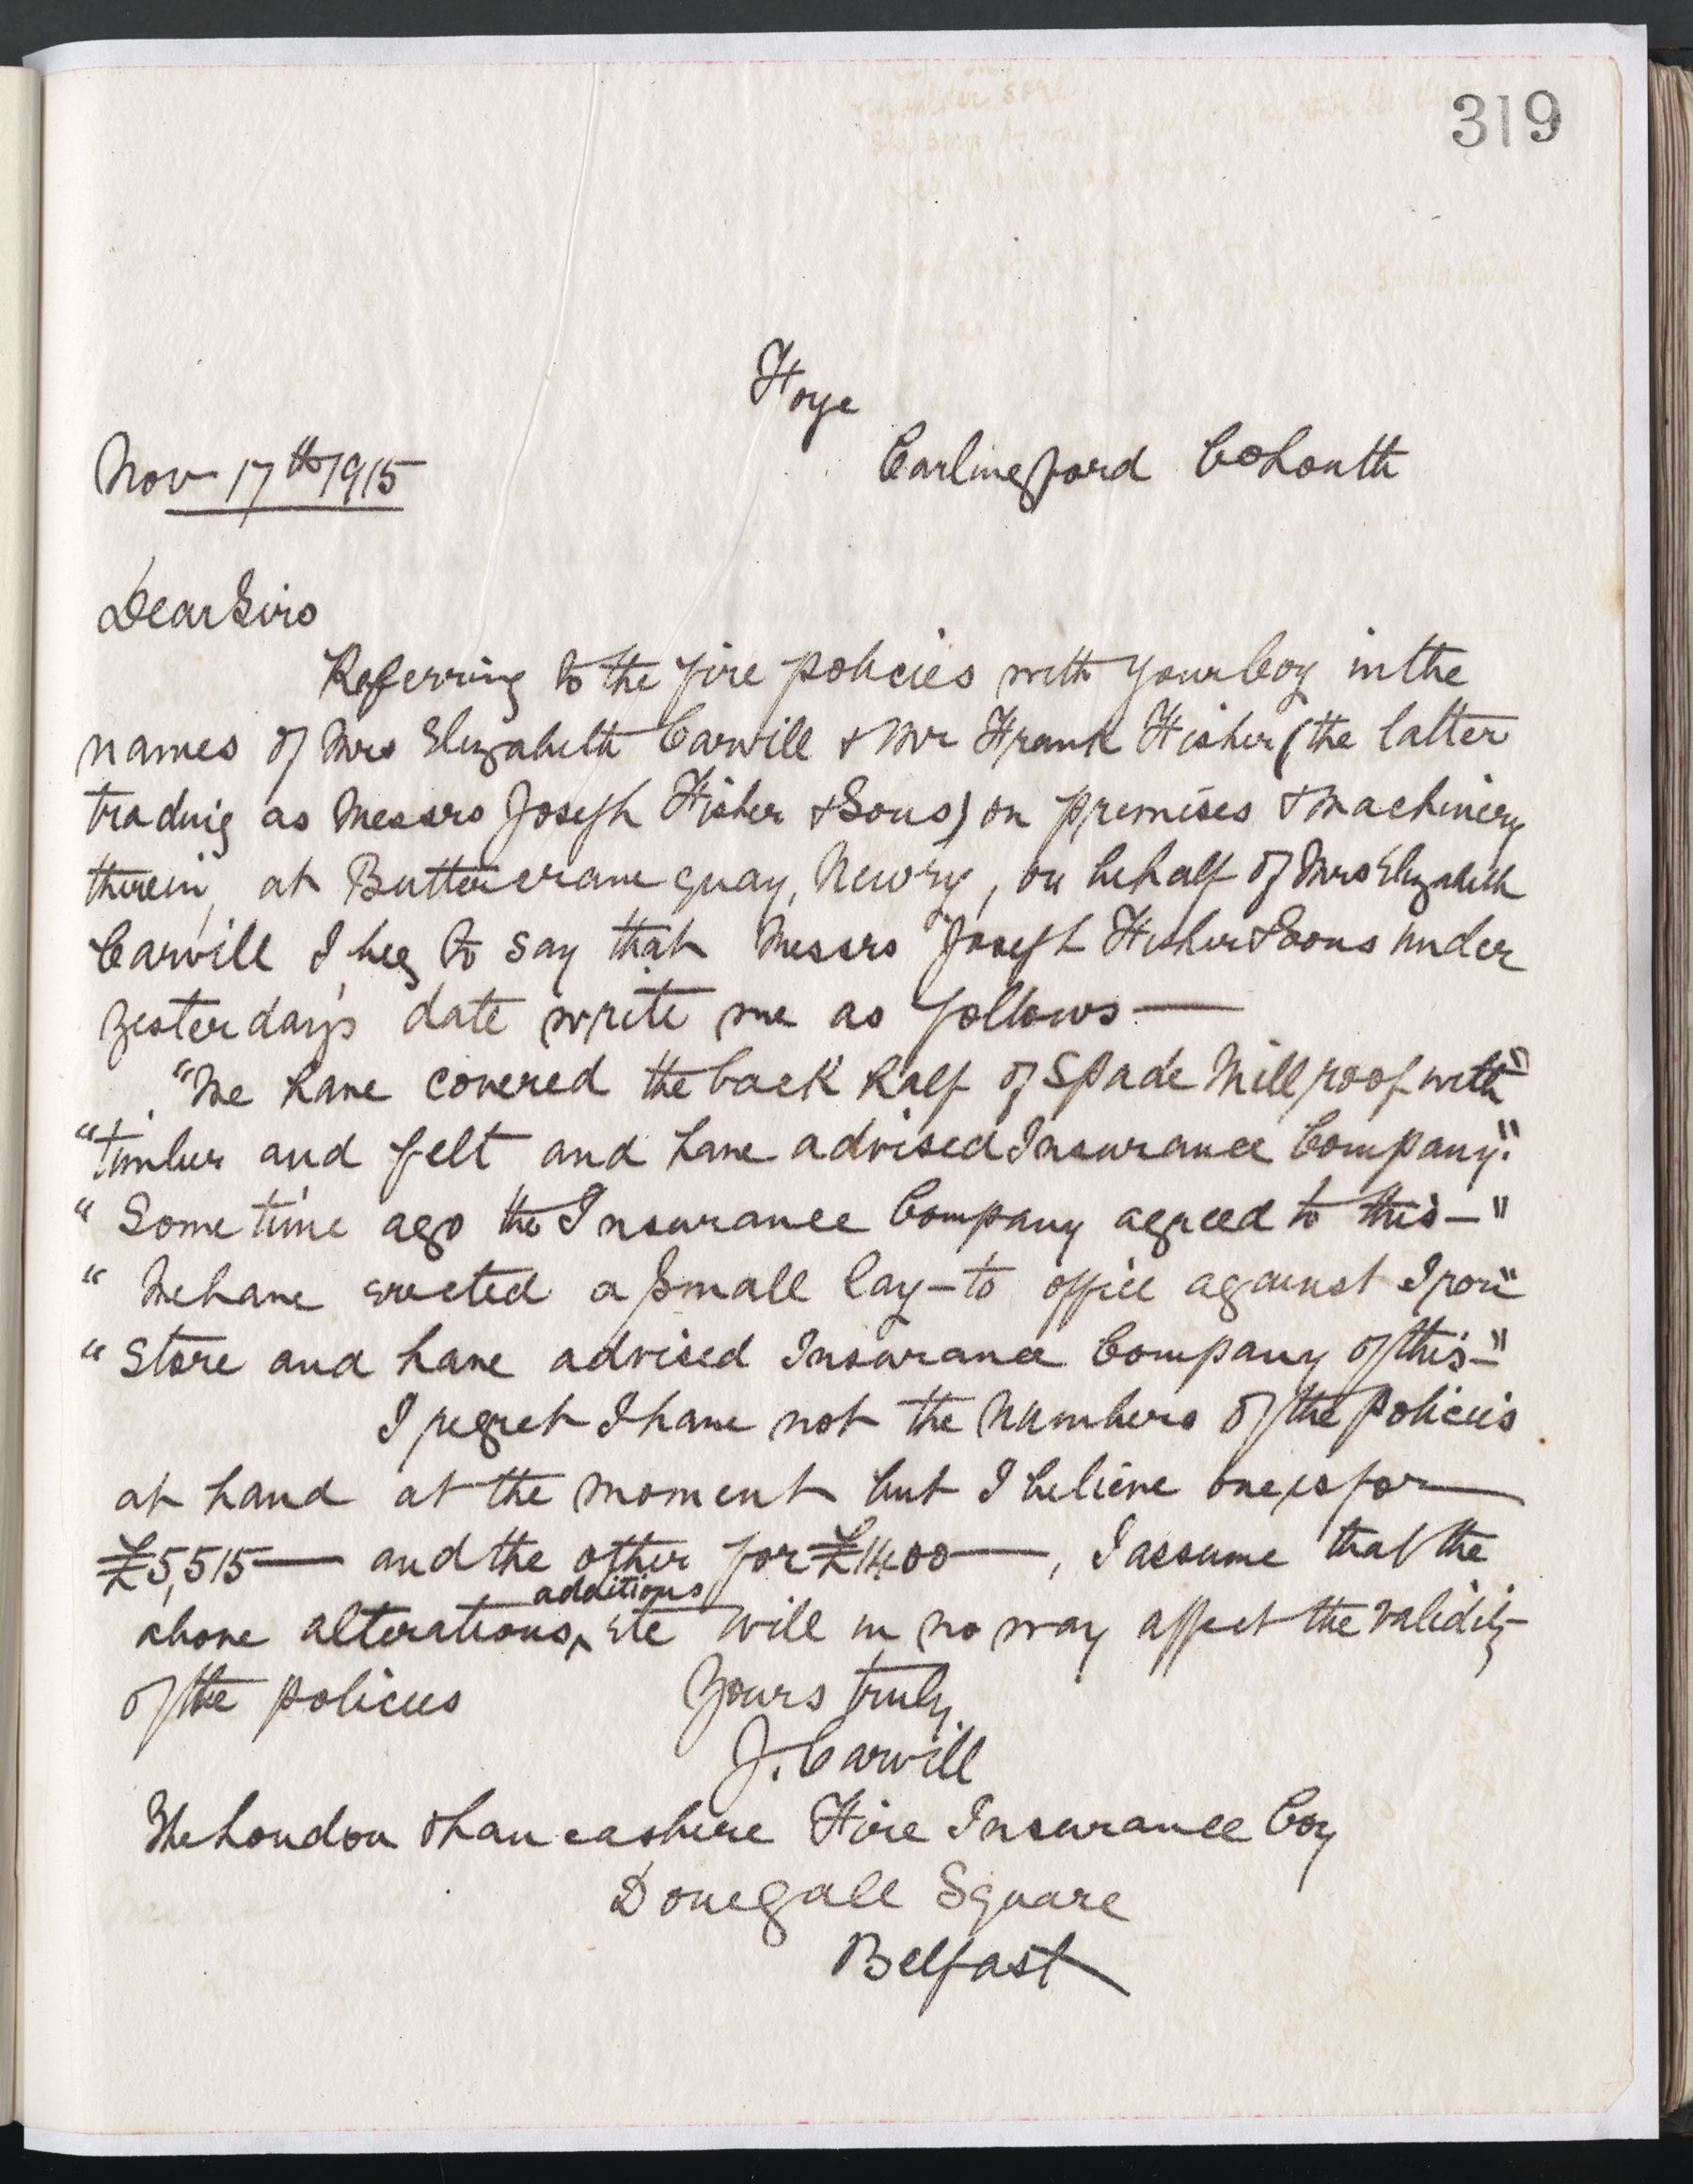 319
Foye
Nov 17th 1915
Carlingford Co Louth
Dear Sirs
Referring to the fire policies with your Coy in the
names of Mrs Elizabeth Carvill & Mr Frank Fisher (the latter
trading as Messrs Joseph Fisher & Sons) on premises & machinery
therein, at Buttercrane quay, Newry, on behalf of Mrs Elizabeth
Carvill I beg to say that Messrs Joseph Fisher & Sons under
yesterday's date write me as follows —
"We have covered the back half of Spade Mill roof with"
"timber and felt and have advised Insurance Company."
"Some time ago the Insurance Company agreed to this —"
"We have erected a small lay-to office against Iron"
"Store and have advised Insurance Company of this —"
I regret I have not the numbers of the policies
at hand at the moment but I believe one is for —
£5,515 — and the other for £1400 —, I assume that the
above alterations, additions etc will in no way affect the validity
of the policies Yours truly
J. Carvill
The London & Lancashire Fire Insurance Coy
Donegall Square
Belfast